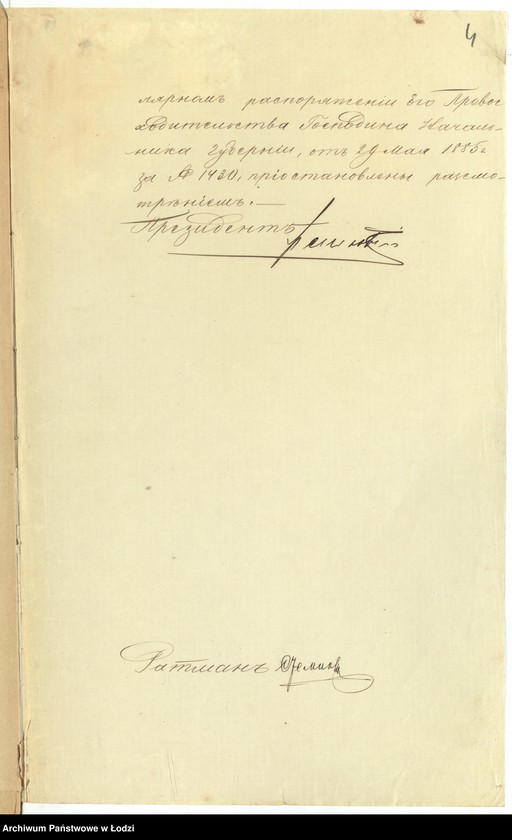 4
лярномъ распоряженіи Его Прево
сходительства Господина Началь-
ника губерніи, отъ 29 Мая 1885 г.
за № 1430, пріостановлены разсмо-
трѣніемъ.—
Президентъ
Ратманъ
Archiwum Państwowe w Łodzi